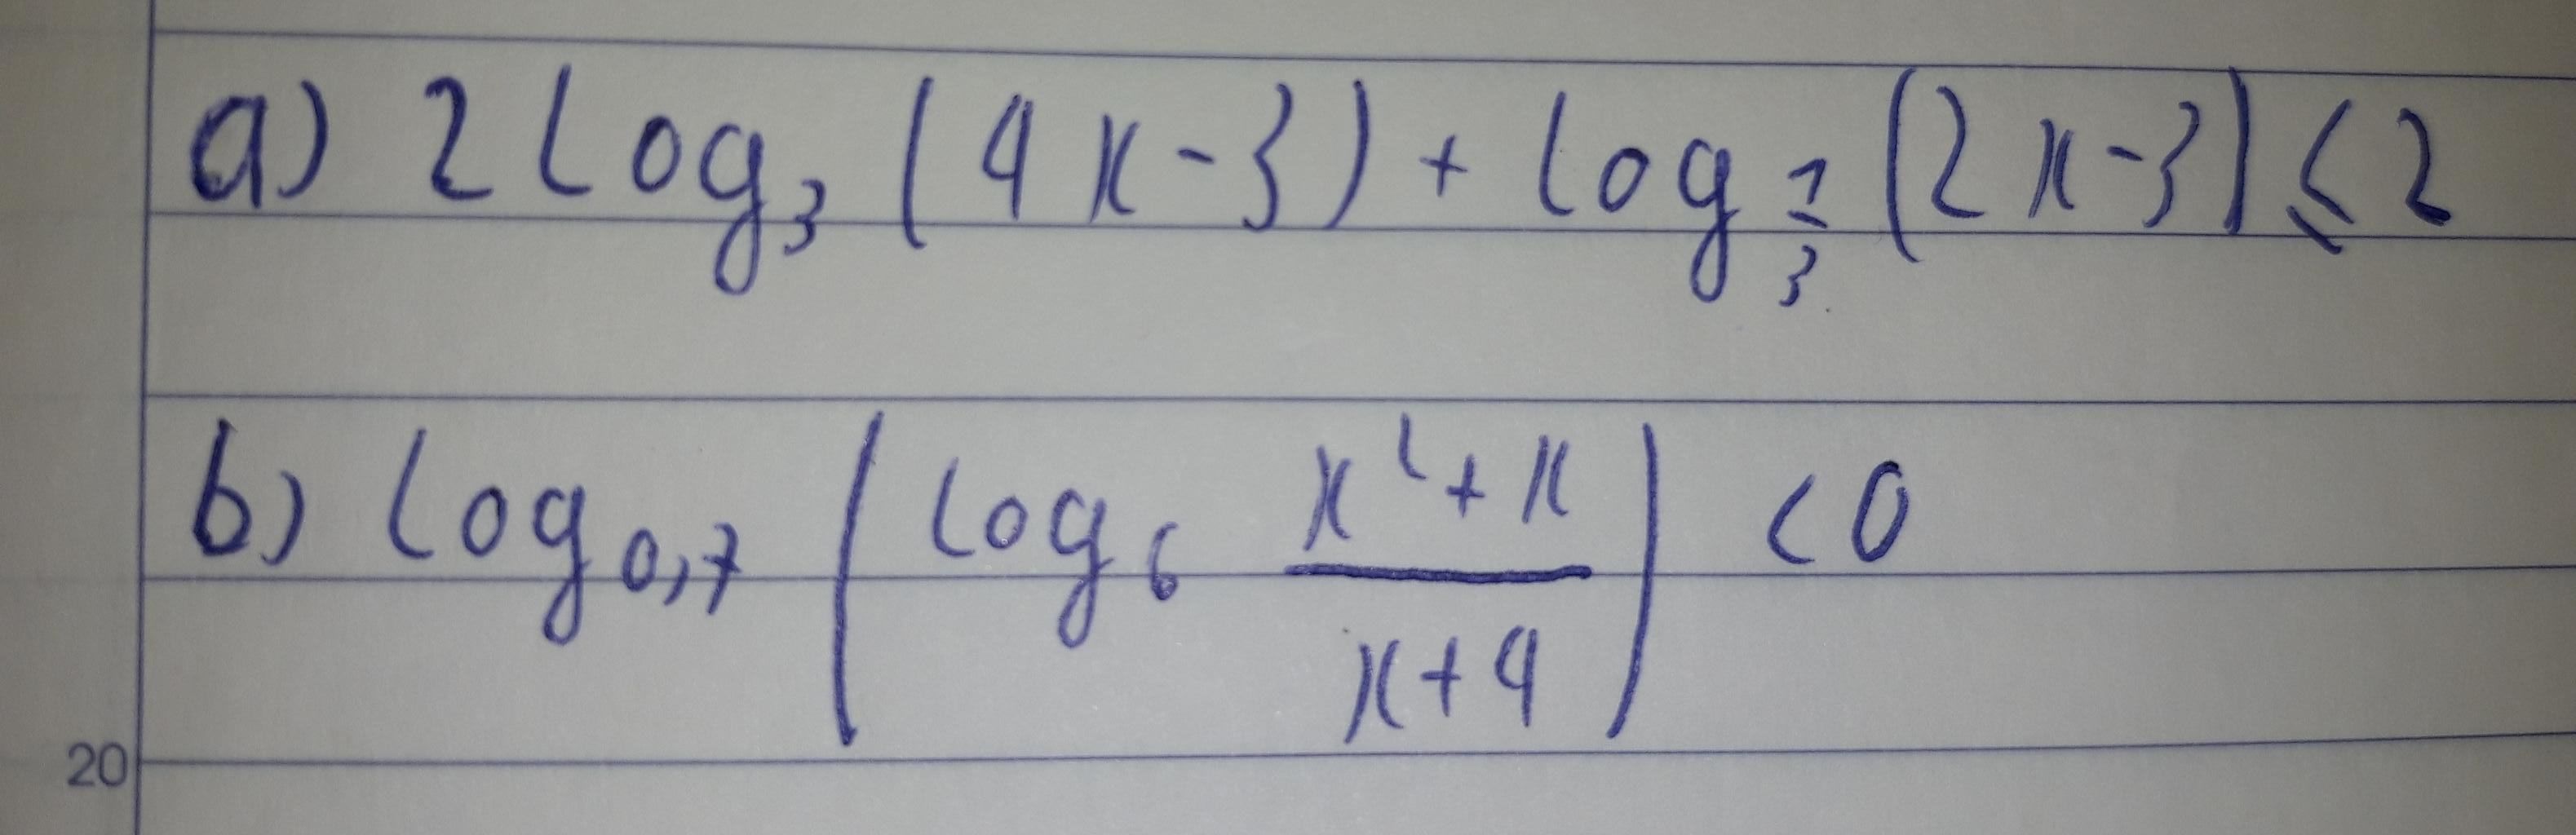 a) 2 log₃ (4x-3) + log_{1/3} (2x-3) ≤ 2
b) log₀,₇ (log₆ \frac{x²+x}{x+4}) < 0
20